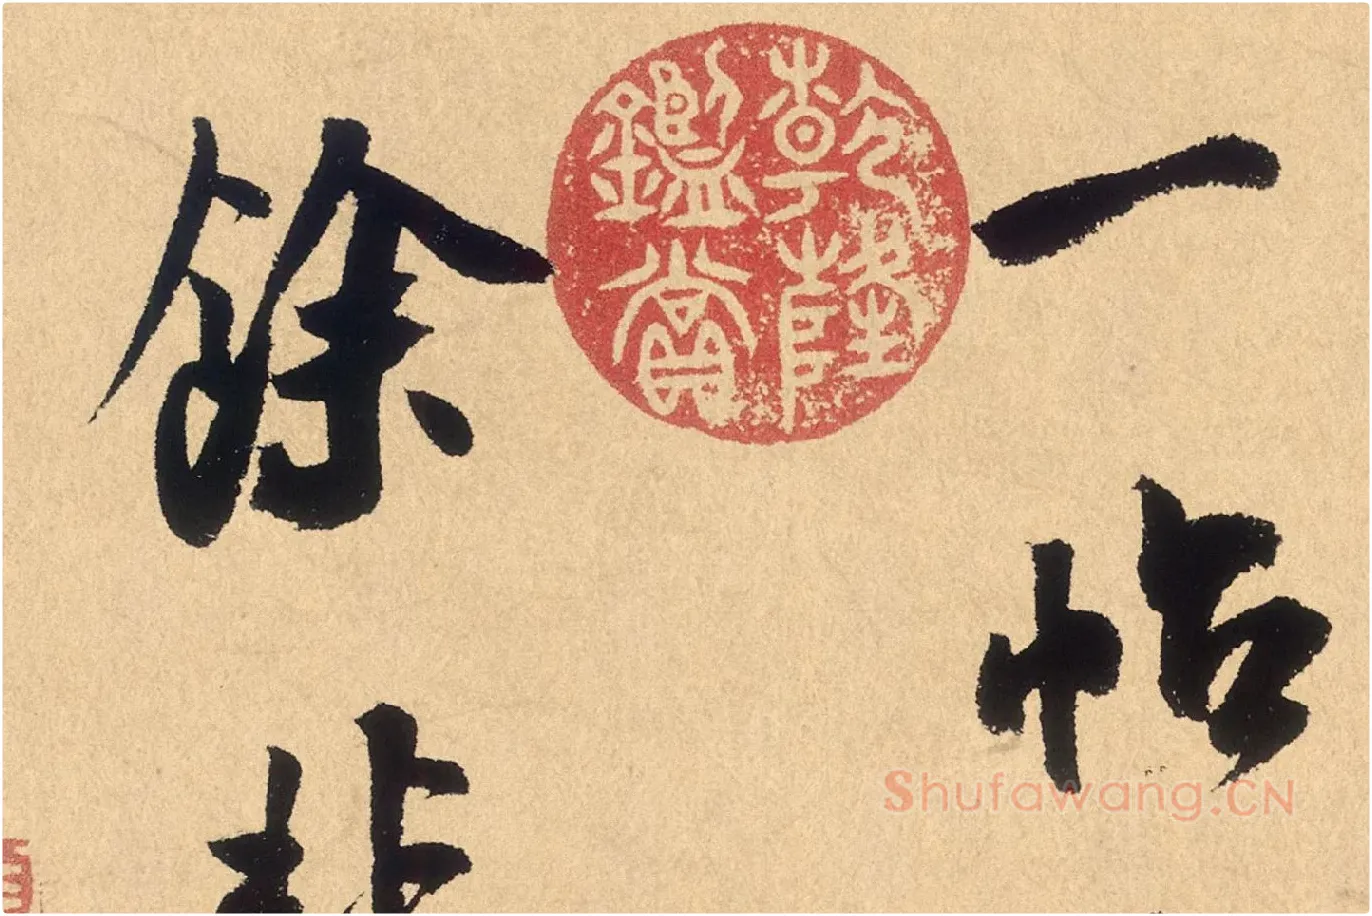 一帖
乾隆
鑑賞
餘
Shufawang.CN